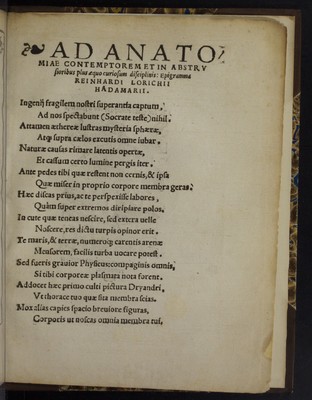 AD ANATO
MIAE CONTEMPTOREM ET IN ABSTRV
sioribus plus æquo curiosum disciplinis: Epigramma
REINHARDI LORICHII
HADAMARII.
Ingenij fragilem nostri superantia captum,
Ad nos spectabunt (Socrate teste) nihil.
Attamen æthereæ lustras mysteria sphæræ,
Atq; supra cælos excutis omne iubar.
Naturæ causas rimare latentis opertæ,
Et cassum certo lumine pergis iter.
Ante pedes tibi quæ restent non cernis, & ipsa
Quæ miser in proprio corpore membra geras.
Hæc discas prius, ac te perspexisse labores,
Quàm super extremos diripiare polos.
In cute quæ teneas nescire, sed extera uelle
Noscere, res dictu turpis opinor erit.
Te maris, & terræ, numeroq; carentis arenæ
Mensorem, facilis turba uocare potest.
Sed fueris grauior Physicus: compaginis omnis,
Si tibi corporeæ plasmata nota forent.
Addocet hæc primo culti pictura Dryandri,
Vt thorace tuo quæ sita membra scias.
Mox alias capies spacio breuiore figuras,
Corporis ut noscas omnia membra tui,